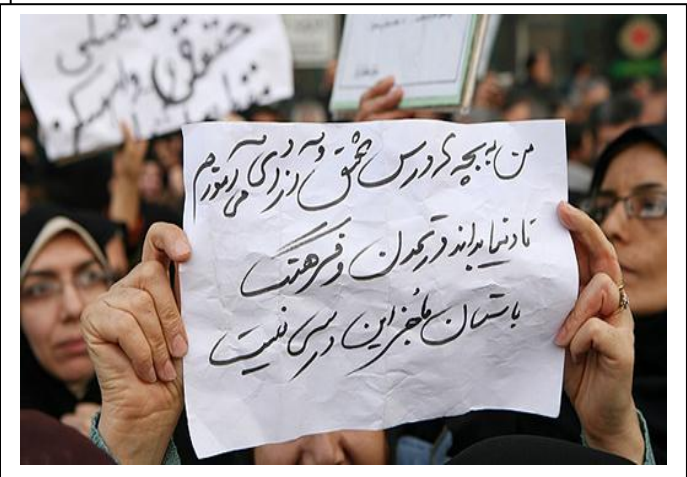 حقیقی
من به بچه ها درس عشق و آزادی می آموزم
تا دنیا بداند در تمدن و فرهنگ
باستان ما جز این درسی نیست